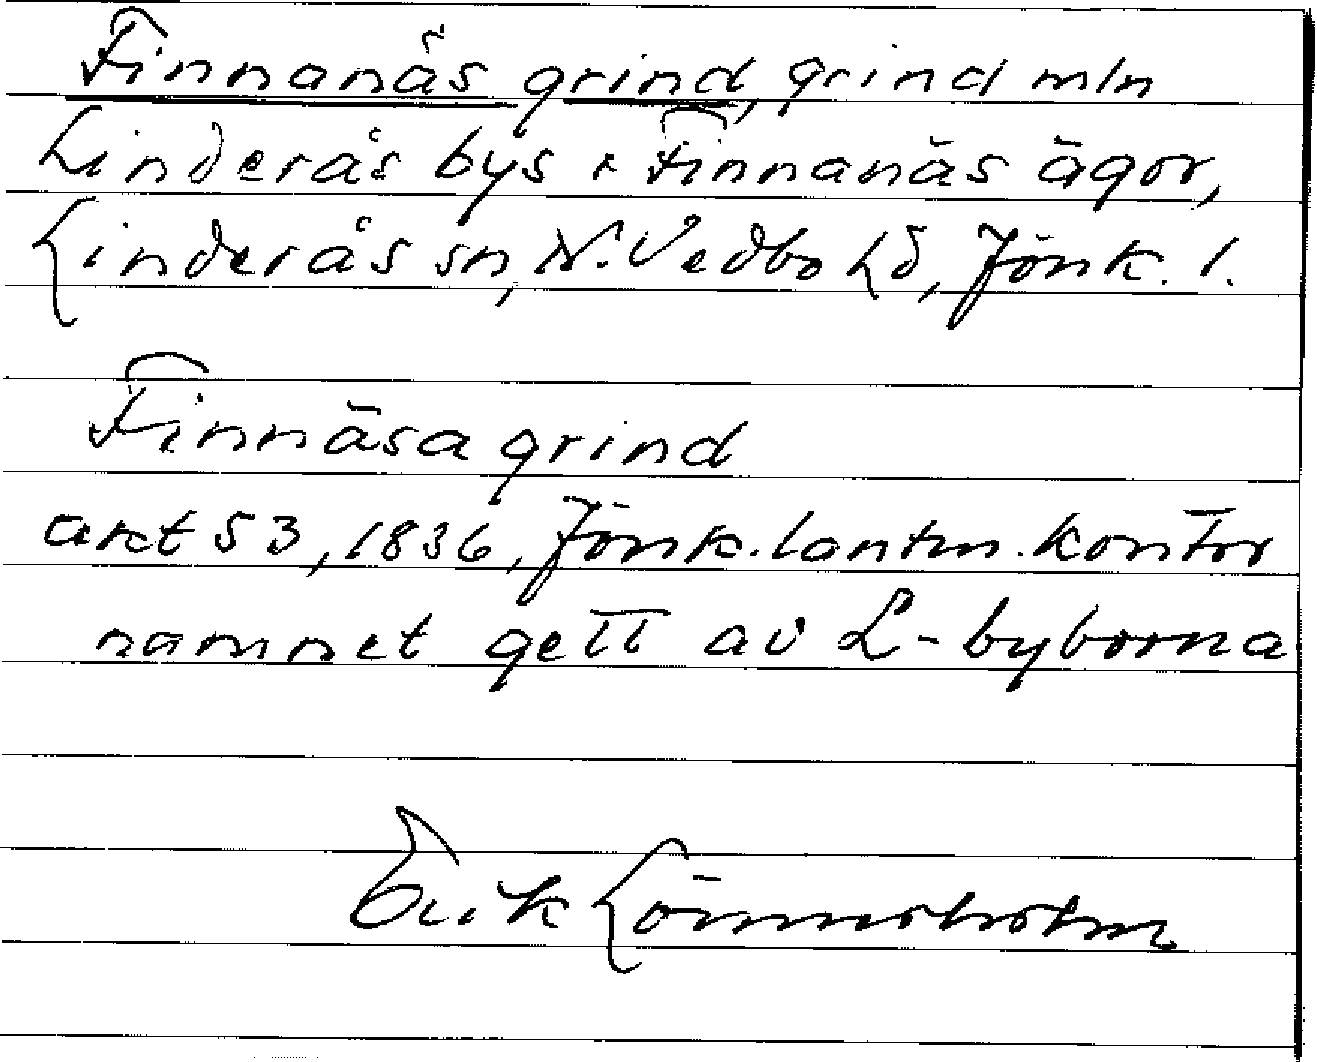 Finnanäs grind, grind mln
Linderås bys & Finnanäs ägor,
Linderås sn, N. Vedbo hd, Jönk. l.
Finnäsa grind
akt 53, 1836, Jönk. lantm. kontor
namnet gett av L-byborna
Erik Lönnerholm